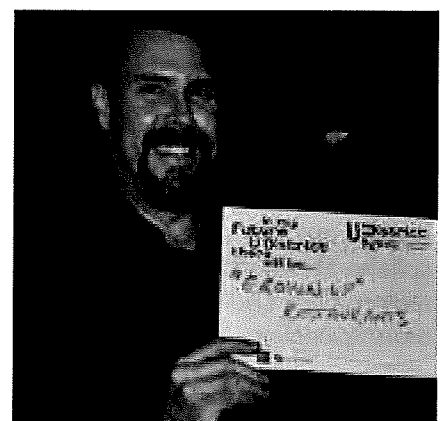 In my
Future
U District
there
will be...
U District
"GROWN UP"
RESTAURANTS